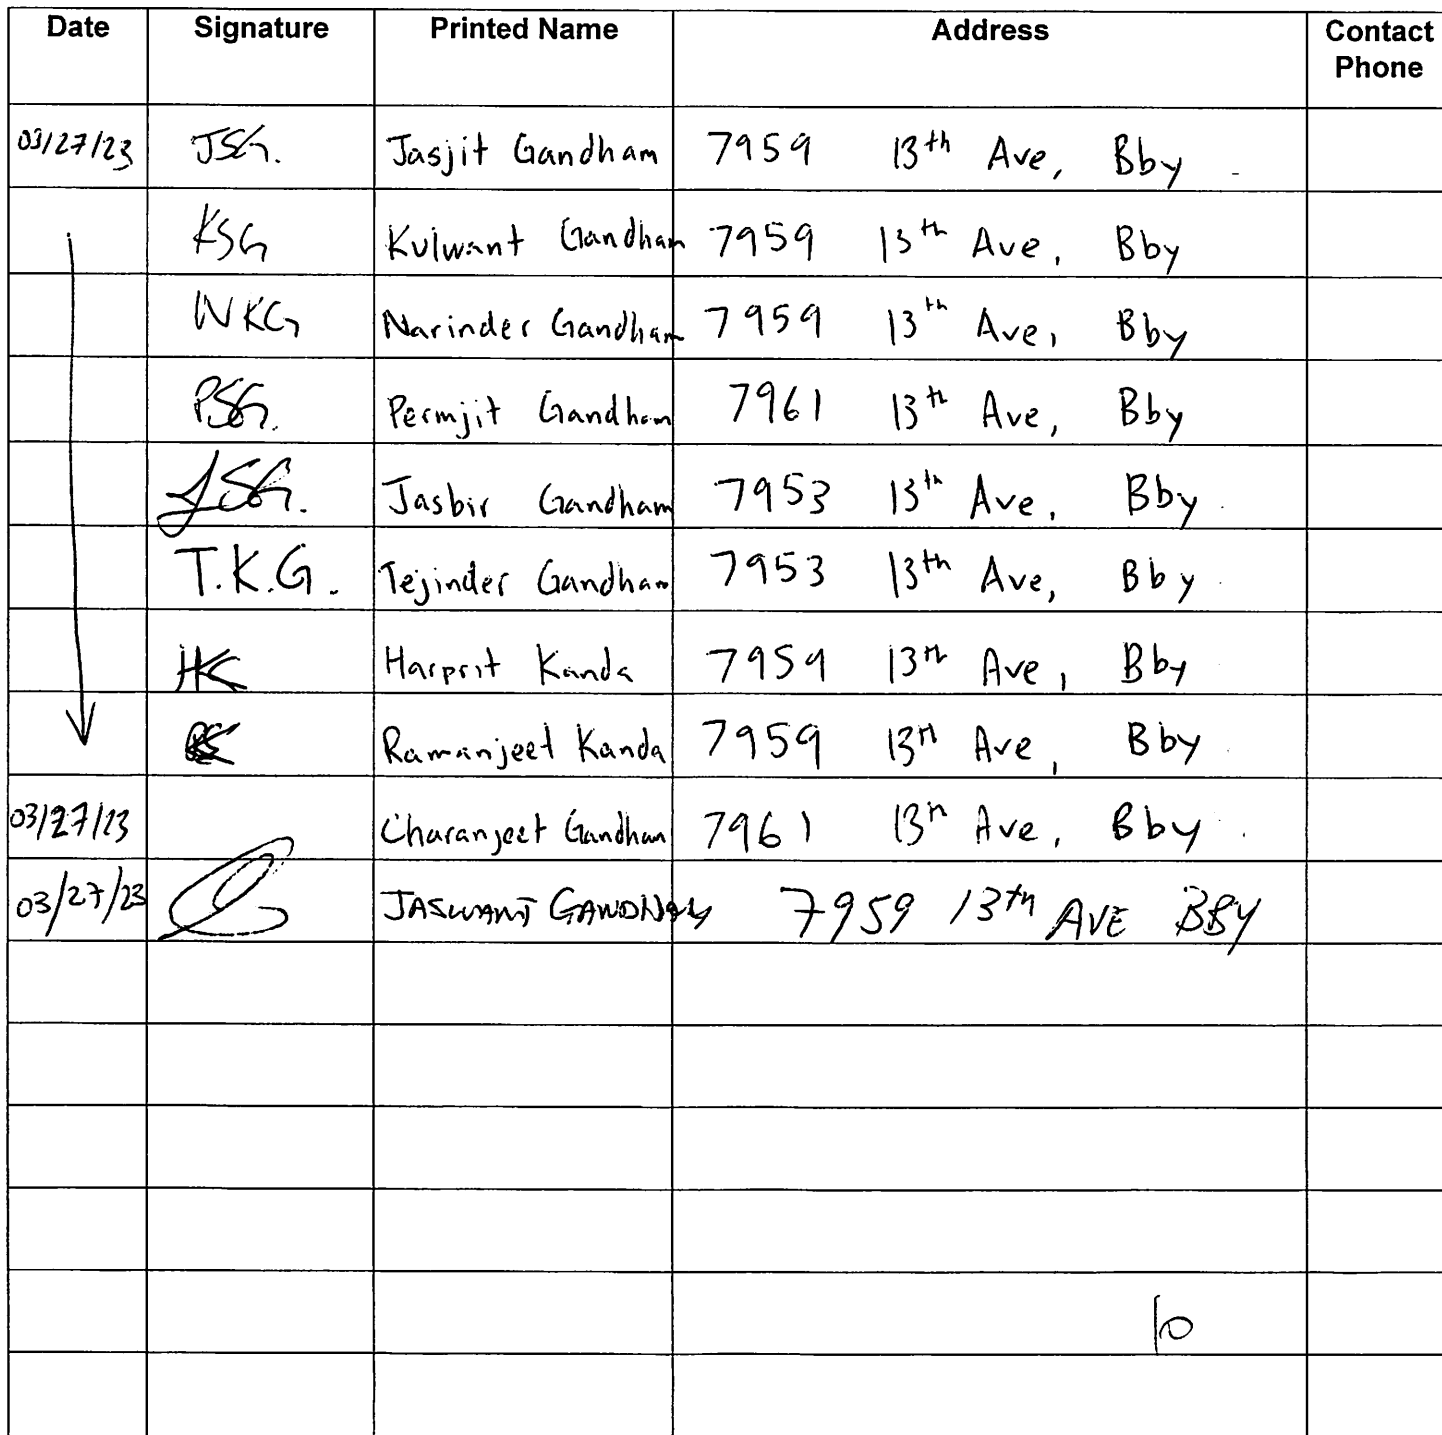 Date Signature Printed Name Address Contact Phone
03/27/23 JSG. Jasjit Gandham 7959 13th Ave, Bby
KSG Kulwant Gandham 7959 13th Ave, Bby
NKG Narinder Gandham 7959 13th Ave, Bby
PSG. Permjit Gandham 7961 13th Ave, Bby
JSG. Jasbir Gandham 7953 13th Ave, Bby
T.K.G. Tejinder Gandham 7953 13th Ave, Bby
HK Harprit Kanda 7959 13th Ave, Bby
Ramanjeet Kanda 7959 13th Ave, Bby
03/27/23 Charanjeet Gandham 7961 13th Ave, Bby
03/27/23 JASWANT GANDHAM 7959 13th AVE BBY
10